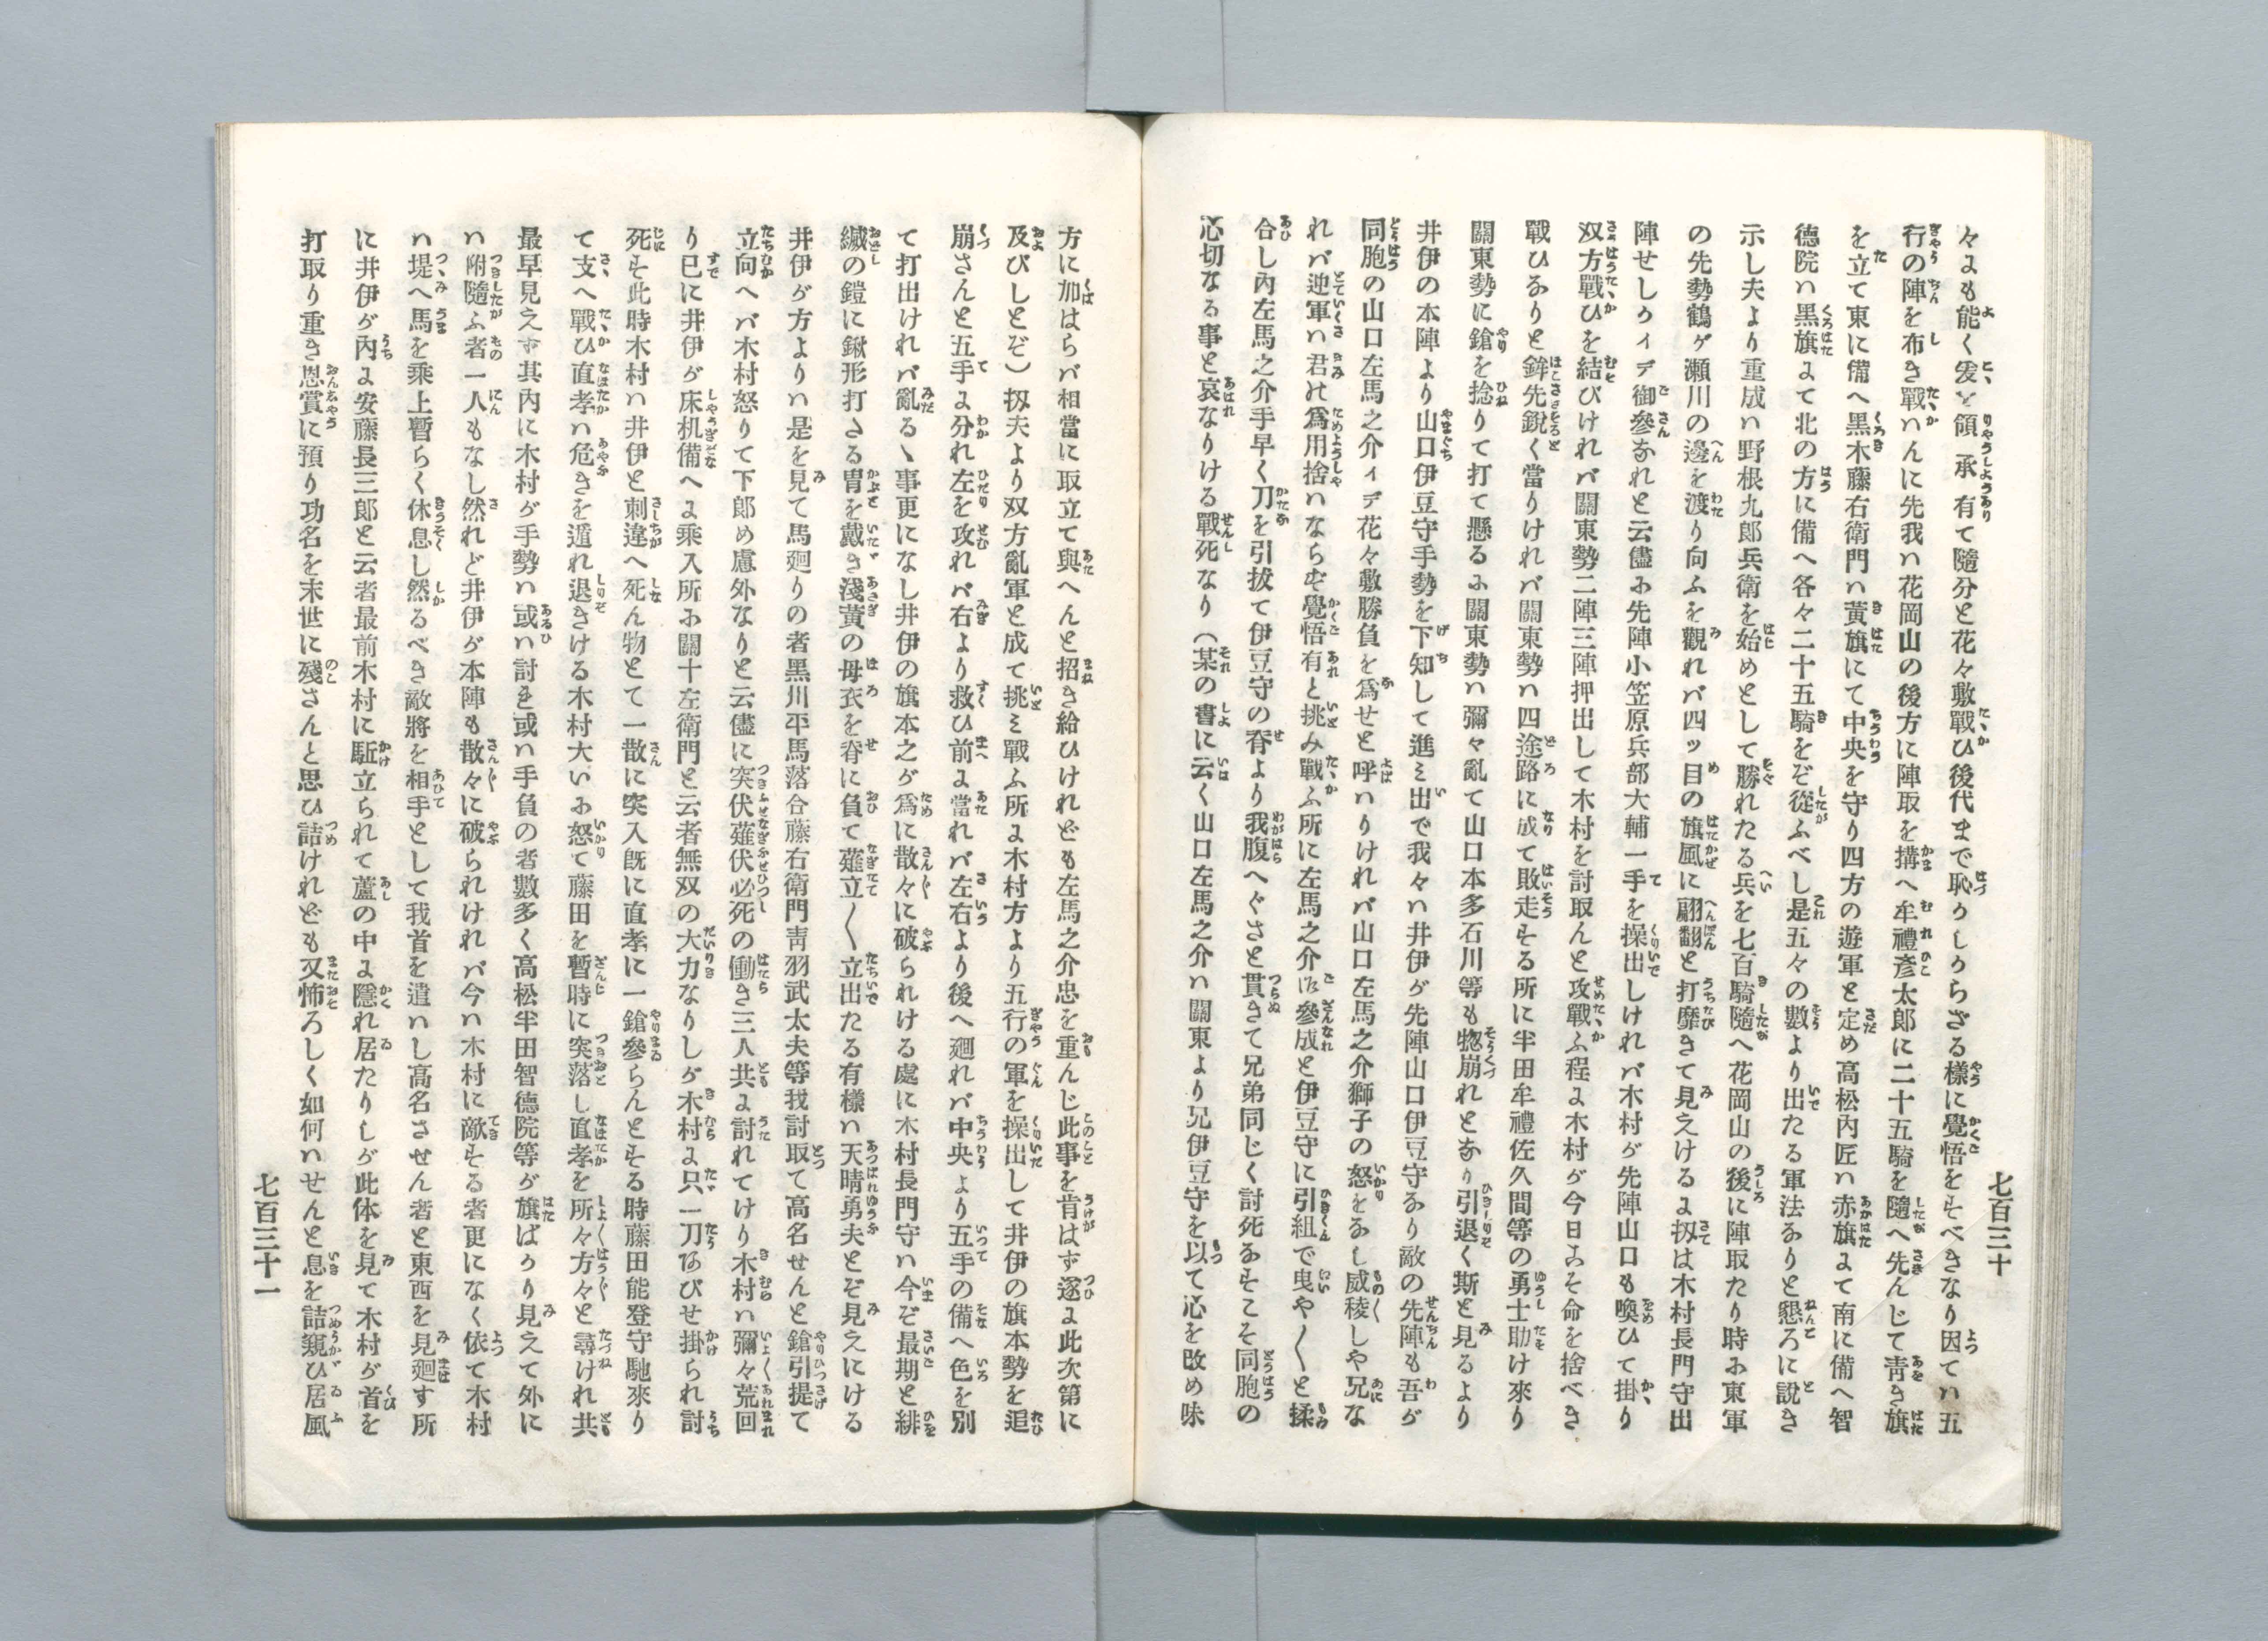 々にも能く爰を領承有て隨分と花々敷戰ひ後代まで恥かしからざる樣に覺悟をすべきなり因てハ五
行の陣を布き戰ハんに先我ハ花岡山の後方に陣取を搆へ牟禮彦太郎に二十五騎を隨へ先んじて靑き旗
を立て東に備へ黒木藤右衛門ハ黃旗にて中央を守り四方の遊軍と定め高松内匠ハ赤旗にて南に備へ智
德院ハ黒旗にて北の方に備へ各々二十五騎をぞ從ふべし是五々の數より出たる軍法なりと懇ろに説き
示し夫より重成ハ野根九郎兵衛を始めとして勝れたる兵を七百騎隨へ花岡山の後に陣取たり時に東軍
の先勢鶴ヶ瀬川の邊を渡り向ふを觀れバ四ッ目の旗風に翩翻と打靡きて見えけるに扨は木村長門守出
陣せしかイデ御參なれと云儘に先陣小笠原兵部大輔一手を操出しけれバ木村が先陣山口も喚ひて掛り
双方戰ひを結びけれバ關東勢二陣三陣押出して木村を討取んと攻戰ふ程に木村が今日こそ命を捨べき
戰ひなりと鉾先鋭く當りけれバ關東勢ハ四途路に成て敗走する所に半田牟禮佐久間等の勇士助け來り
關東勢に鎗を捻りて打て懸るに關東勢ハ彌々亂て山口本多石川等も惣崩れとなり引退く斯と見るより
井伊の本陣より山口伊豆守手勢を下知して進ミ出で我々ハ井伊が先陣山口伊豆守なり敵の先陣も吾が
同胞の山口左馬之介イデ花々敷勝負を爲せと呼ハりけれバ山口左馬之介獅子の怒をなし威稜しや兄な
れバ迚軍ハ君の爲用捨ハならず覺悟有と挑み戰ふ所に左馬之介に參成と伊豆守に引組で曳や〱と揉
合し内左馬之介手早く刀を引拔て伊豆守の脊より我腹へぐさと貫きて兄弟同じく討死なすこそ同胞の
心切なる事と哀なりける戰死なり（某の書に云く山口左馬之介ハ關東より兄伊豆守を以て心を改め味
七百三十
方に加はらバ相當に取立て與へんと招き給ひけれども左馬之介忠を重んじ此事を肯はず遂に此次第に
及びしとぞ）扨夫より双方亂軍と成て挑ミ戰ふ所に木村方より五行の軍を操出して井伊の旗本勢を追
崩さんと五手に分れ左を攻れバ右より救ひ前に當れバ左右より後へ廻れバ中央より五手の備へ色を別
て打出けれバ亂るヽ事更になし井伊の旗本之が爲に散々に破られける處に木村長門守ハ今ぞ最期と緋
縅の鎧に鍬形打たる冑を戴き淺黃の母衣を脊に負て薙立〱立出たる有樣ハ天晴勇夫とぞ見えにける
井伊が方よりハ是を見て馬廻りの者黒川平馬落合藤右衛門靑羽武太夫等我討取て高名せんと鎗引提て
立向へバ木村怒りて下郎め慮外なりと云儘に突伏薙伏必死の働き三人共に討れてけり木村ハ彌々荒回
り已に井伊が床机備へに乘入所に關十左衛門と云者無双の大力なりしが木村に只一刀あびせ掛られ討
死す此時木村ハ井伊と刺違へ死ん物とて一散に突入既に直孝に一鎗參らんとする時藤田能登守馳來り
て支へ戰ひ直孝ハ危きを遁れ退きける木村大いに怒て藤田を暫時に突落し直孝を所々方々と尋けれ共
最早見えず其内に木村が手勢ハ或ハ討れ或ハ手負の者數多く高松半田智德院等が旗ばかり見えて外に
ハ附隨ふ者一人もなし然れど井伊が本陣も散々に破られけれバ今ハ木村に敵する者更になく依て木村
ハ堤へ馬を乘上暫らく休息し然るべき敵將を相手として我首を遣ハし高名させん者と東西を見廻す所
に井伊が内に安藤長三郎と云者最前木村に駈立られて蘆の中に隱れ居たりしが此体を見て木村が首を
打取り重き恩賞に預り功名を末世に殘さんと思ひ詰けれども又怖ろしく如何ハせんと息を詰窺ひ居風
七百三十一